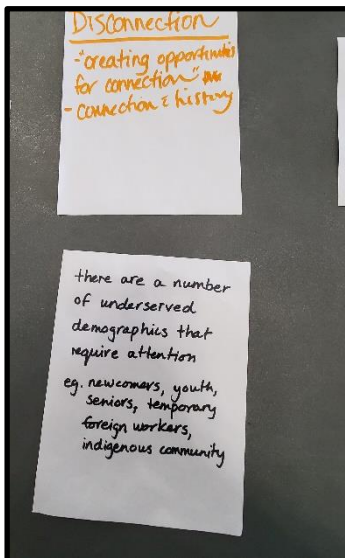 Disconnection
- "creating opportunities
for connection"
- connection & history
there are a number
of underserved
demographics that
require attention
eg. newcomers, youth,
seniors, temporary
foreign workers,
indigenous community